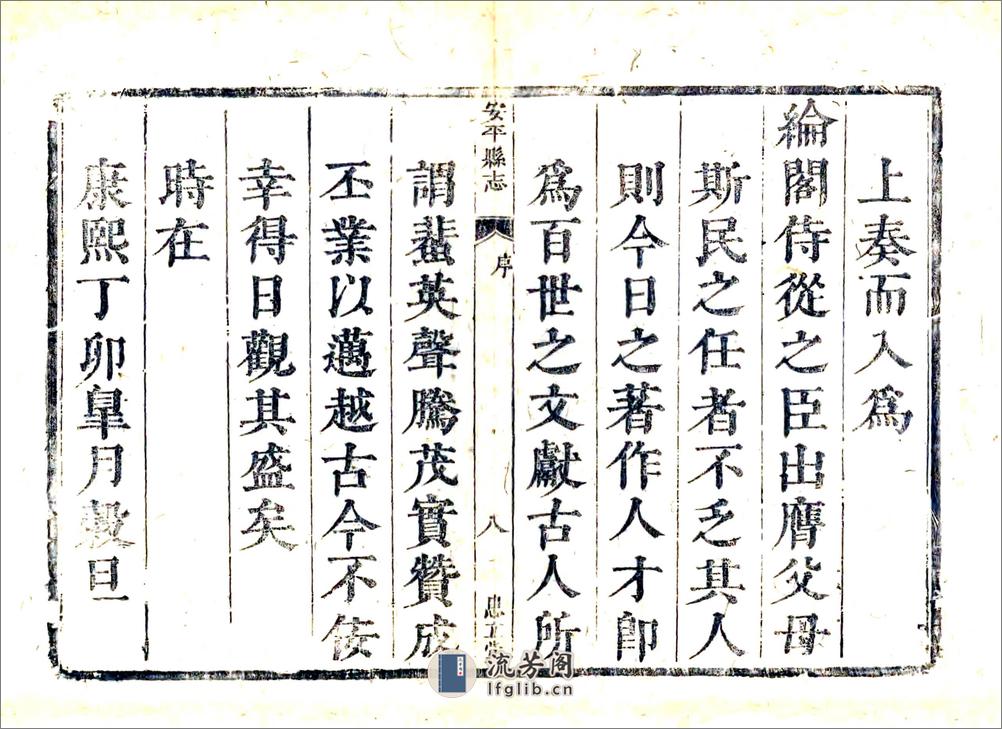 上奏而入爲
綸閣侍從之臣出膺父母
斯民之任者不乏其人
則今日之著作人才卽
爲百世之文獻古人所
安平縣志
序
八
謂蜚英聲騰茂實贊成
丕業以邁越古今不佞
幸得日觀其盛矣
時在
康熙丁卯皐月穀旦
流芳阁
lfglib.cn